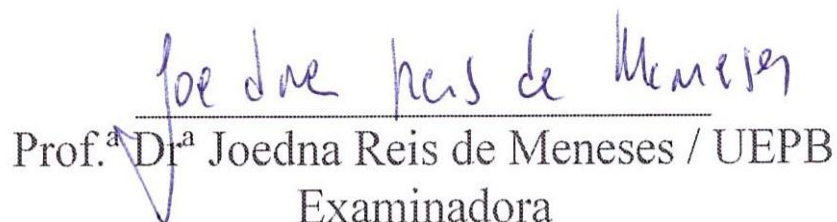 Joedna Reis de Meneses
Prof.ª Drª Joedna Reis de Meneses / UEPB
Examinadora